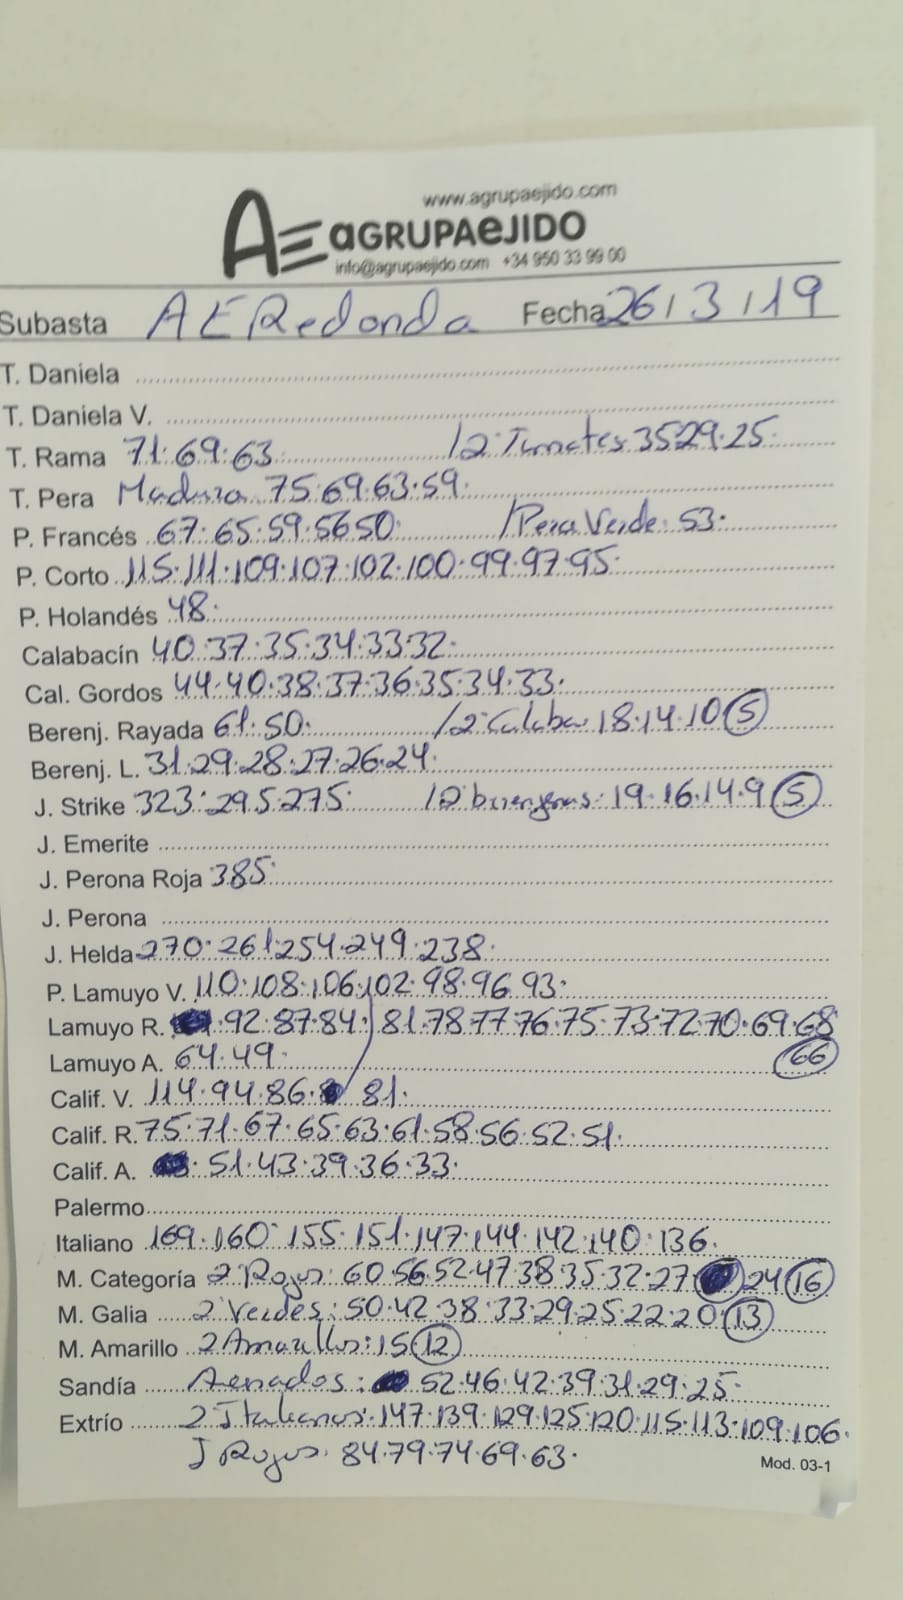 www.agrupaejido.com
AE aGRUPAeJIDO
info@agrupaejido.com +34 950 33 99 00
Subasta AE Redonda Fecha 26/3/19
T. Daniela
T. Daniela V.
T. Rama 71·69·63· /2ª Tomates 35·29·25·
T. Pera Madura 75·69·63·59·
P. Francés 67·65·59·56·50· /Pera Verde: 53·
P. Corto 115·111·109·107·102·100·99·97·95·
P. Holandés 48·
Calabacín 40·37·35·34·33·32·
Cal. Gordos 44·40·38·37·36·35·34·33·
Berenj. Rayada 61·50· /2ª Calaba· 18·14·10 5
Berenj. L. 31·29·28·27·26·24·
J. Strike 323·295·275· /2ª 19·16·14·9 5
J. Emerite
J. Perona Roja 385·
J. Perona
J. Helda 270·261·254·249·238·
P. Lamuyo V. 110·108·106·102·98·96·93·
Lamuyo R. ·92·87·84· 81·78·77·76·75·73·72·70·69·68
Lamuyo A. 64·49· 66
Calif. V. 114·94·86· 81·
Calif. R. 75·71·67·65·63·61·58·56·52·51·
Calif. A. 51·43·39·36·33·
Palermo
Italiano 169·160·155·151·147·144·142·140·136·
M. Categoría 2ª Rojos: 60·56·52·47·38·35·32·27 24 16
M. Galia 2ª Verdes: 50·42·38·33·29·25·22·20· 13
M. Amarillo 2 Amarillos: 15 12
Sandía Asados: 52·46·42·39·31·29·25·
Extrío 2 Italianos· 147·139·129·125·120·115·113·109·106·
J Rojos· 84·79·74·69·63·
Mod. 03-1